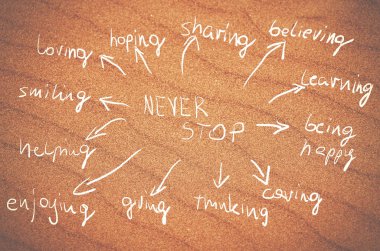 NEVER
STOP
loving
hoping
sharing
believing
learning
being
happy
caring
thinking
giving
enjoying
helping
smiling